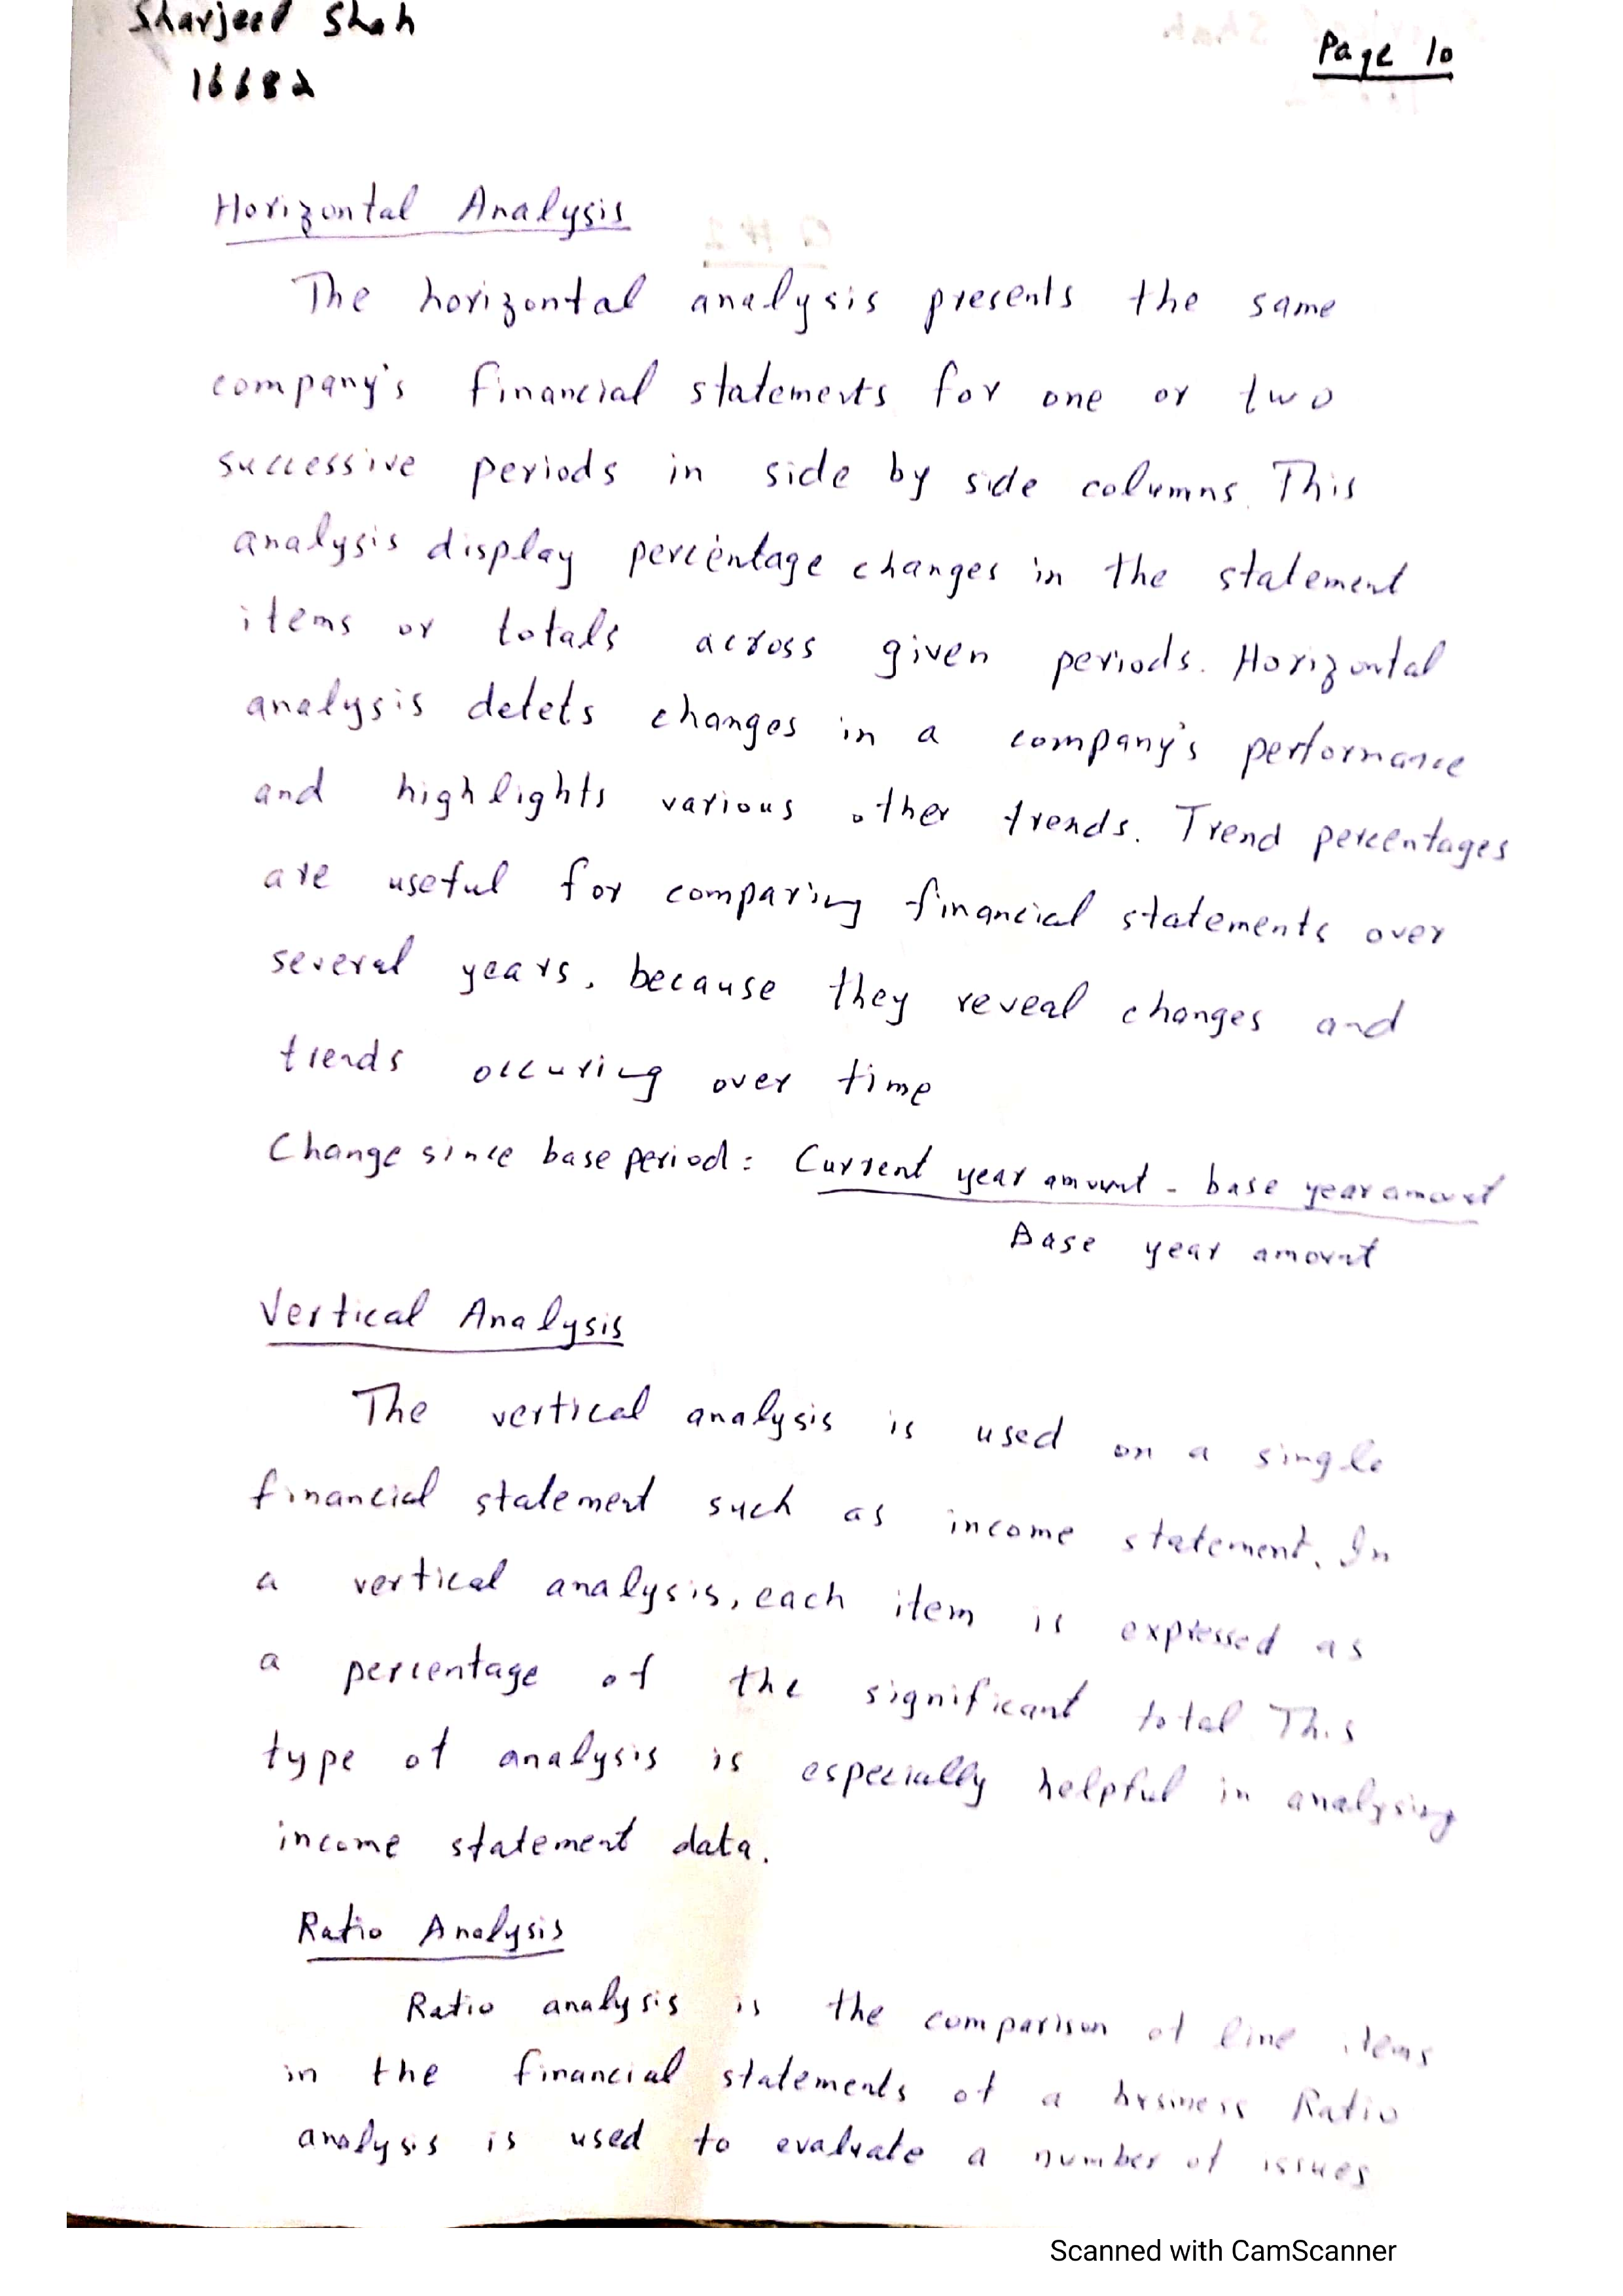 Sharjeel Shah
16682
Page 10
Horizontal Analysis
The horizontal analysis presents the same
company's financial statements for one or two
successive periods in side by side columns. This
analysis display percentage changes in the statement
items or totals across given periods. Horizontal
analysis detets changes in a company's performance
and highlights various other trends. Trend percentages
are useful for comparing financial statements over
several years, because they reveal changes and
trends occuring over time
Change since base period: Current year amount - base year amount
Base year amount
Vertical Analysis
The vertical analysis is used on a single
financial statement such as income statement. In
a vertical analysis, each item is expressed as
a percentage of the significant total. This
type of analysis is especially helpful in analysing
income statement data.
Ratio Analysis
Ratio analysis is the comparison of line items
in the financial statements of a business Ratio
analysis is used to evaluate a number of issues
Scanned with CamScanner